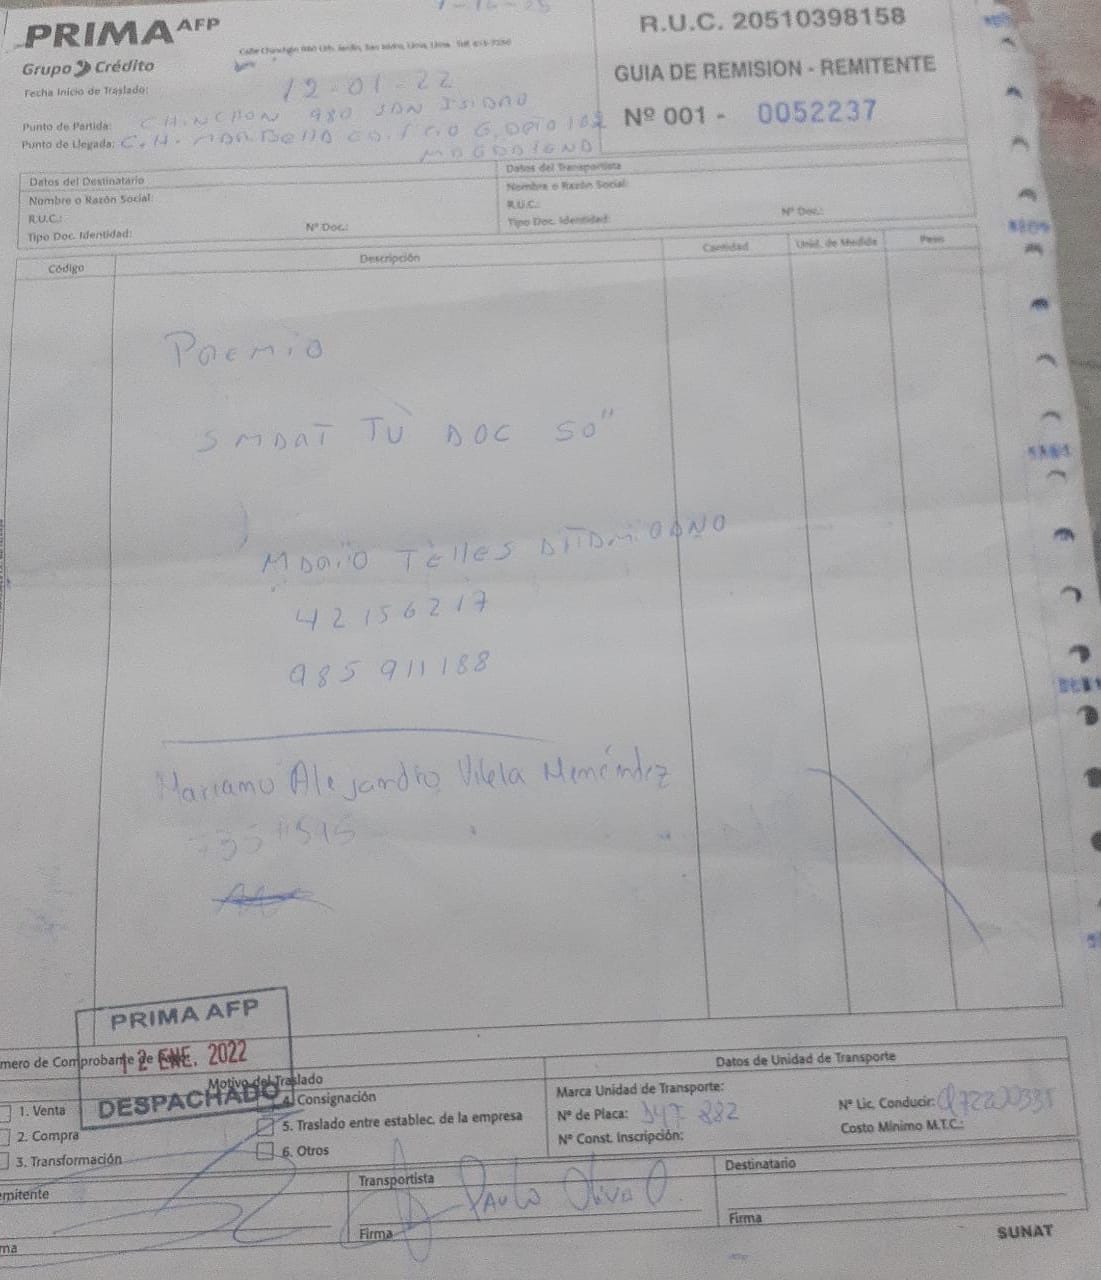 PRIMA AFP
Grupo Crédito
R.U.C. 20510398158
GUIA DE REMISION - REMITENTE
Nº 001 - 0052237
Fecha Inicio de Traslado: 12-01-22
Punto de Partida: CHINCHON 980 SAN ISIDRO
Punto de Llegada: C.H.
Datos del Destinatario
Nombre o Razón Social:
R.U.C.:
Tipo Doc. Identidad:
Nº Doc.:
Datos del Transportista
Nombre o Razón Social:
R.U.C.:
Tipo Doc. Identidad:
Nº Doc.:
Código
Descripción
Cantidad
Unid. de Medida
Peso
PREMIO
SMART TV AOC 50"
MARIO TELLES
42156217
985 911188
Mariano Alejandro Vilela Menéndez
PRIMA AFP
12 ENE. 2022
DESPACHADO
mero de Comprobante de
Motivo del Traslado
1. Venta
2. Compra
3. Transformación
4. Consignación
5. Traslado entre establec. de la empresa
6. Otros
Datos de Unidad de Transporte
Marca Unidad de Transporte:
Nº de Placa: 882
Nº Const. Inscripción:
Nº Lic. Conducir:
Costo Mínimo M.T.C.:
mitente
Transportista
Paulo Oliva O.
Firma
Destinatario
Firma
SUNAT